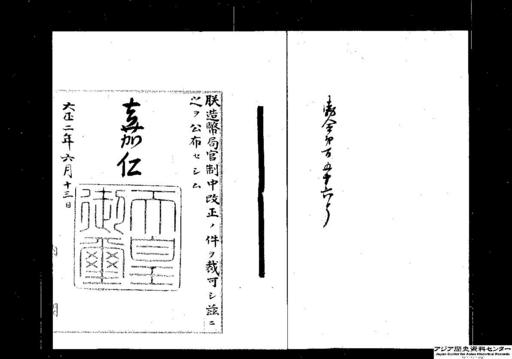 勅令第百五十六号
朕造幣局官制中改正ノ件ヲ裁可シ茲ニ
之ヲ公布セシム
嘉仁
天皇御璽
大正二年六月十三日
内閣
アジア歴史資料センター
Japan Center for Asian Historical Records